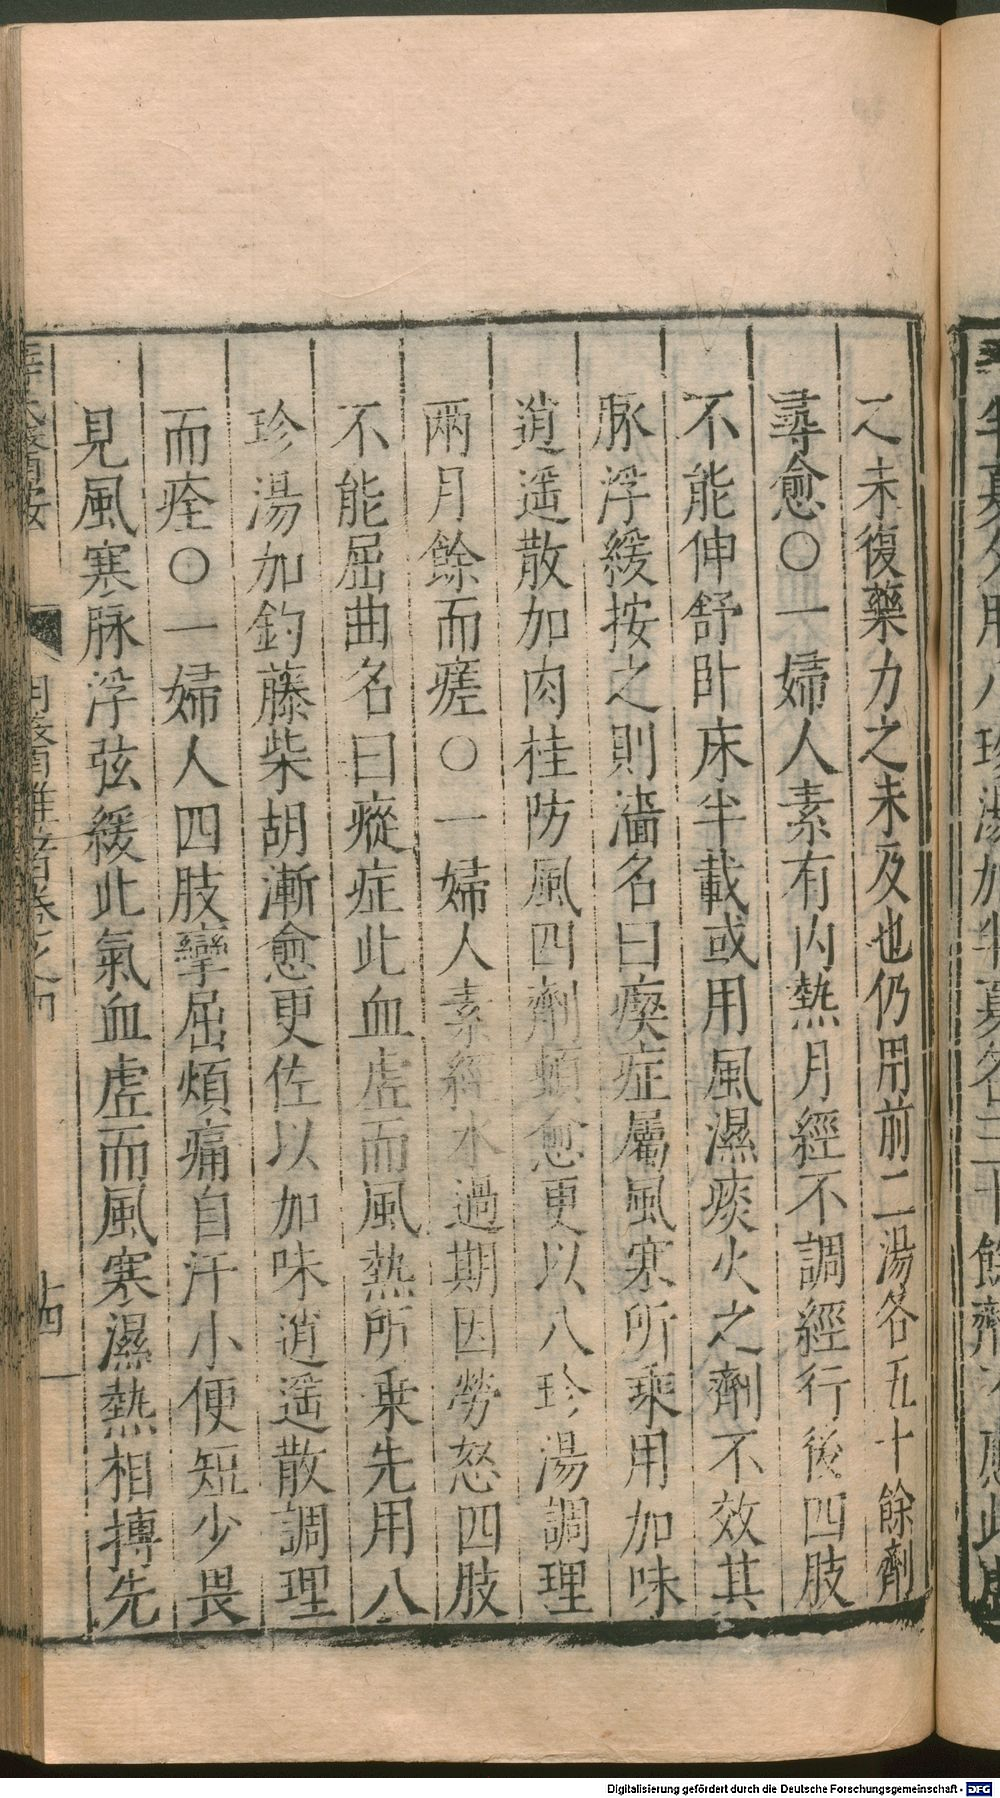 之未復藥力之未及也仍用前二湯各五十餘劑
尋愈○一婦人素有内熱月經不調經行後四肢
不能伸舒卧床半載或用風濕痰火之劑不效其
脉浮緩按之則濇名曰瘈症屬風寒所乘用加味
逍遥散加肉桂防風四劑頓愈更以八珍湯調理
兩月餘而瘥○一婦人素經水過期因勞怒四肢
不能屈曲名曰瘲症此血虚而風熱所乗先用八
珍湯加釣藤柴胡漸愈更佐以加味逍遥散調理
而痊○一婦人四肢攣屈煩痛自汗小便短少畏
見風寒脉浮弦緩此氣血虚而風寒濕熱相搏先
十四
Digitalisierung gefördert durch die Deutsche Forschungsgemeinschaft - DFG